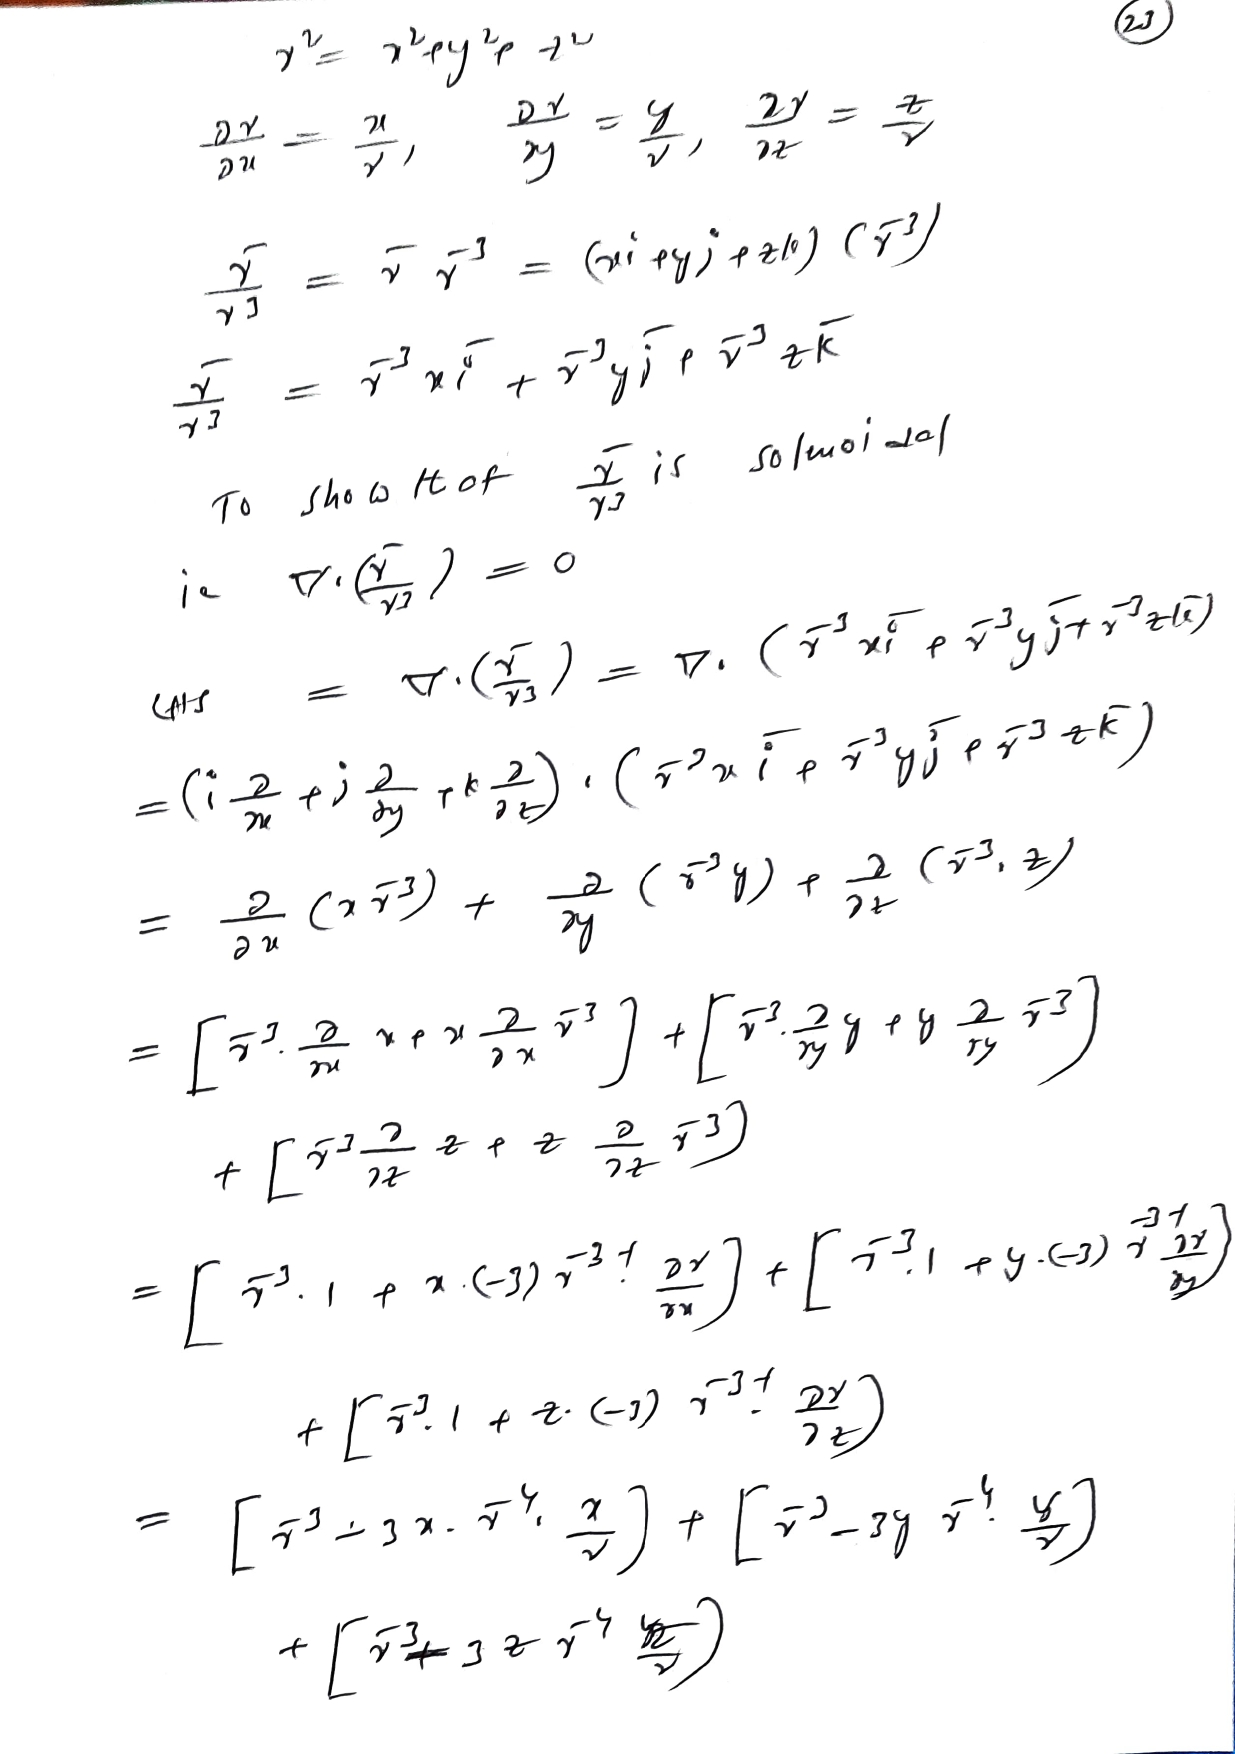 (23)
r² = x² + y² + z²
∂r/∂x = x/r, ∂r/∂y = y/r, ∂r/∂z = z/r
r̄/r³ = r̄ r⁻³ = (xi + yj + zk) (r⁻³)
r̄/r³ = r⁻³ x ī + r⁻³ y j̄ + r⁻³ z k̄
To show that r̄/r³ is solenoidal
ie ∇·(r̄/r³) = 0
LHS = ∇·(r̄/r³) = ∇·(r⁻³ x ī + r⁻³ y j̄ + r⁻³ z k̄)
= (i ∂/∂x + j ∂/∂y + k ∂/∂z)·(r⁻³ x ī + r⁻³ y j̄ + r⁻³ z k̄)
= ∂/∂x (x r⁻³) + ∂/∂y (r⁻³ y) + ∂/∂z (r⁻³. z)
= [r⁻³. ∂/∂x x + x ∂/∂x r⁻³] + [r⁻³. ∂/∂y y + y ∂/∂y r⁻³]
+ [r⁻³ ∂/∂z z + z ∂/∂z r⁻³]
= [r⁻³. 1 + x.(-3) r⁻³⁻¹. ∂r/∂x] + [r⁻³. 1 + y.(-3) r⁻³⁻¹ ∂r/∂y]
+ [r⁻³. 1 + z. (-3) r⁻³⁻¹. ∂r/∂z]
= [r⁻³ - 3x. r⁻⁴. x/r] + [r⁻³ - 3y r⁻⁴. y/r]
+ [r⁻³ - 3 z r⁻⁴ z/r]